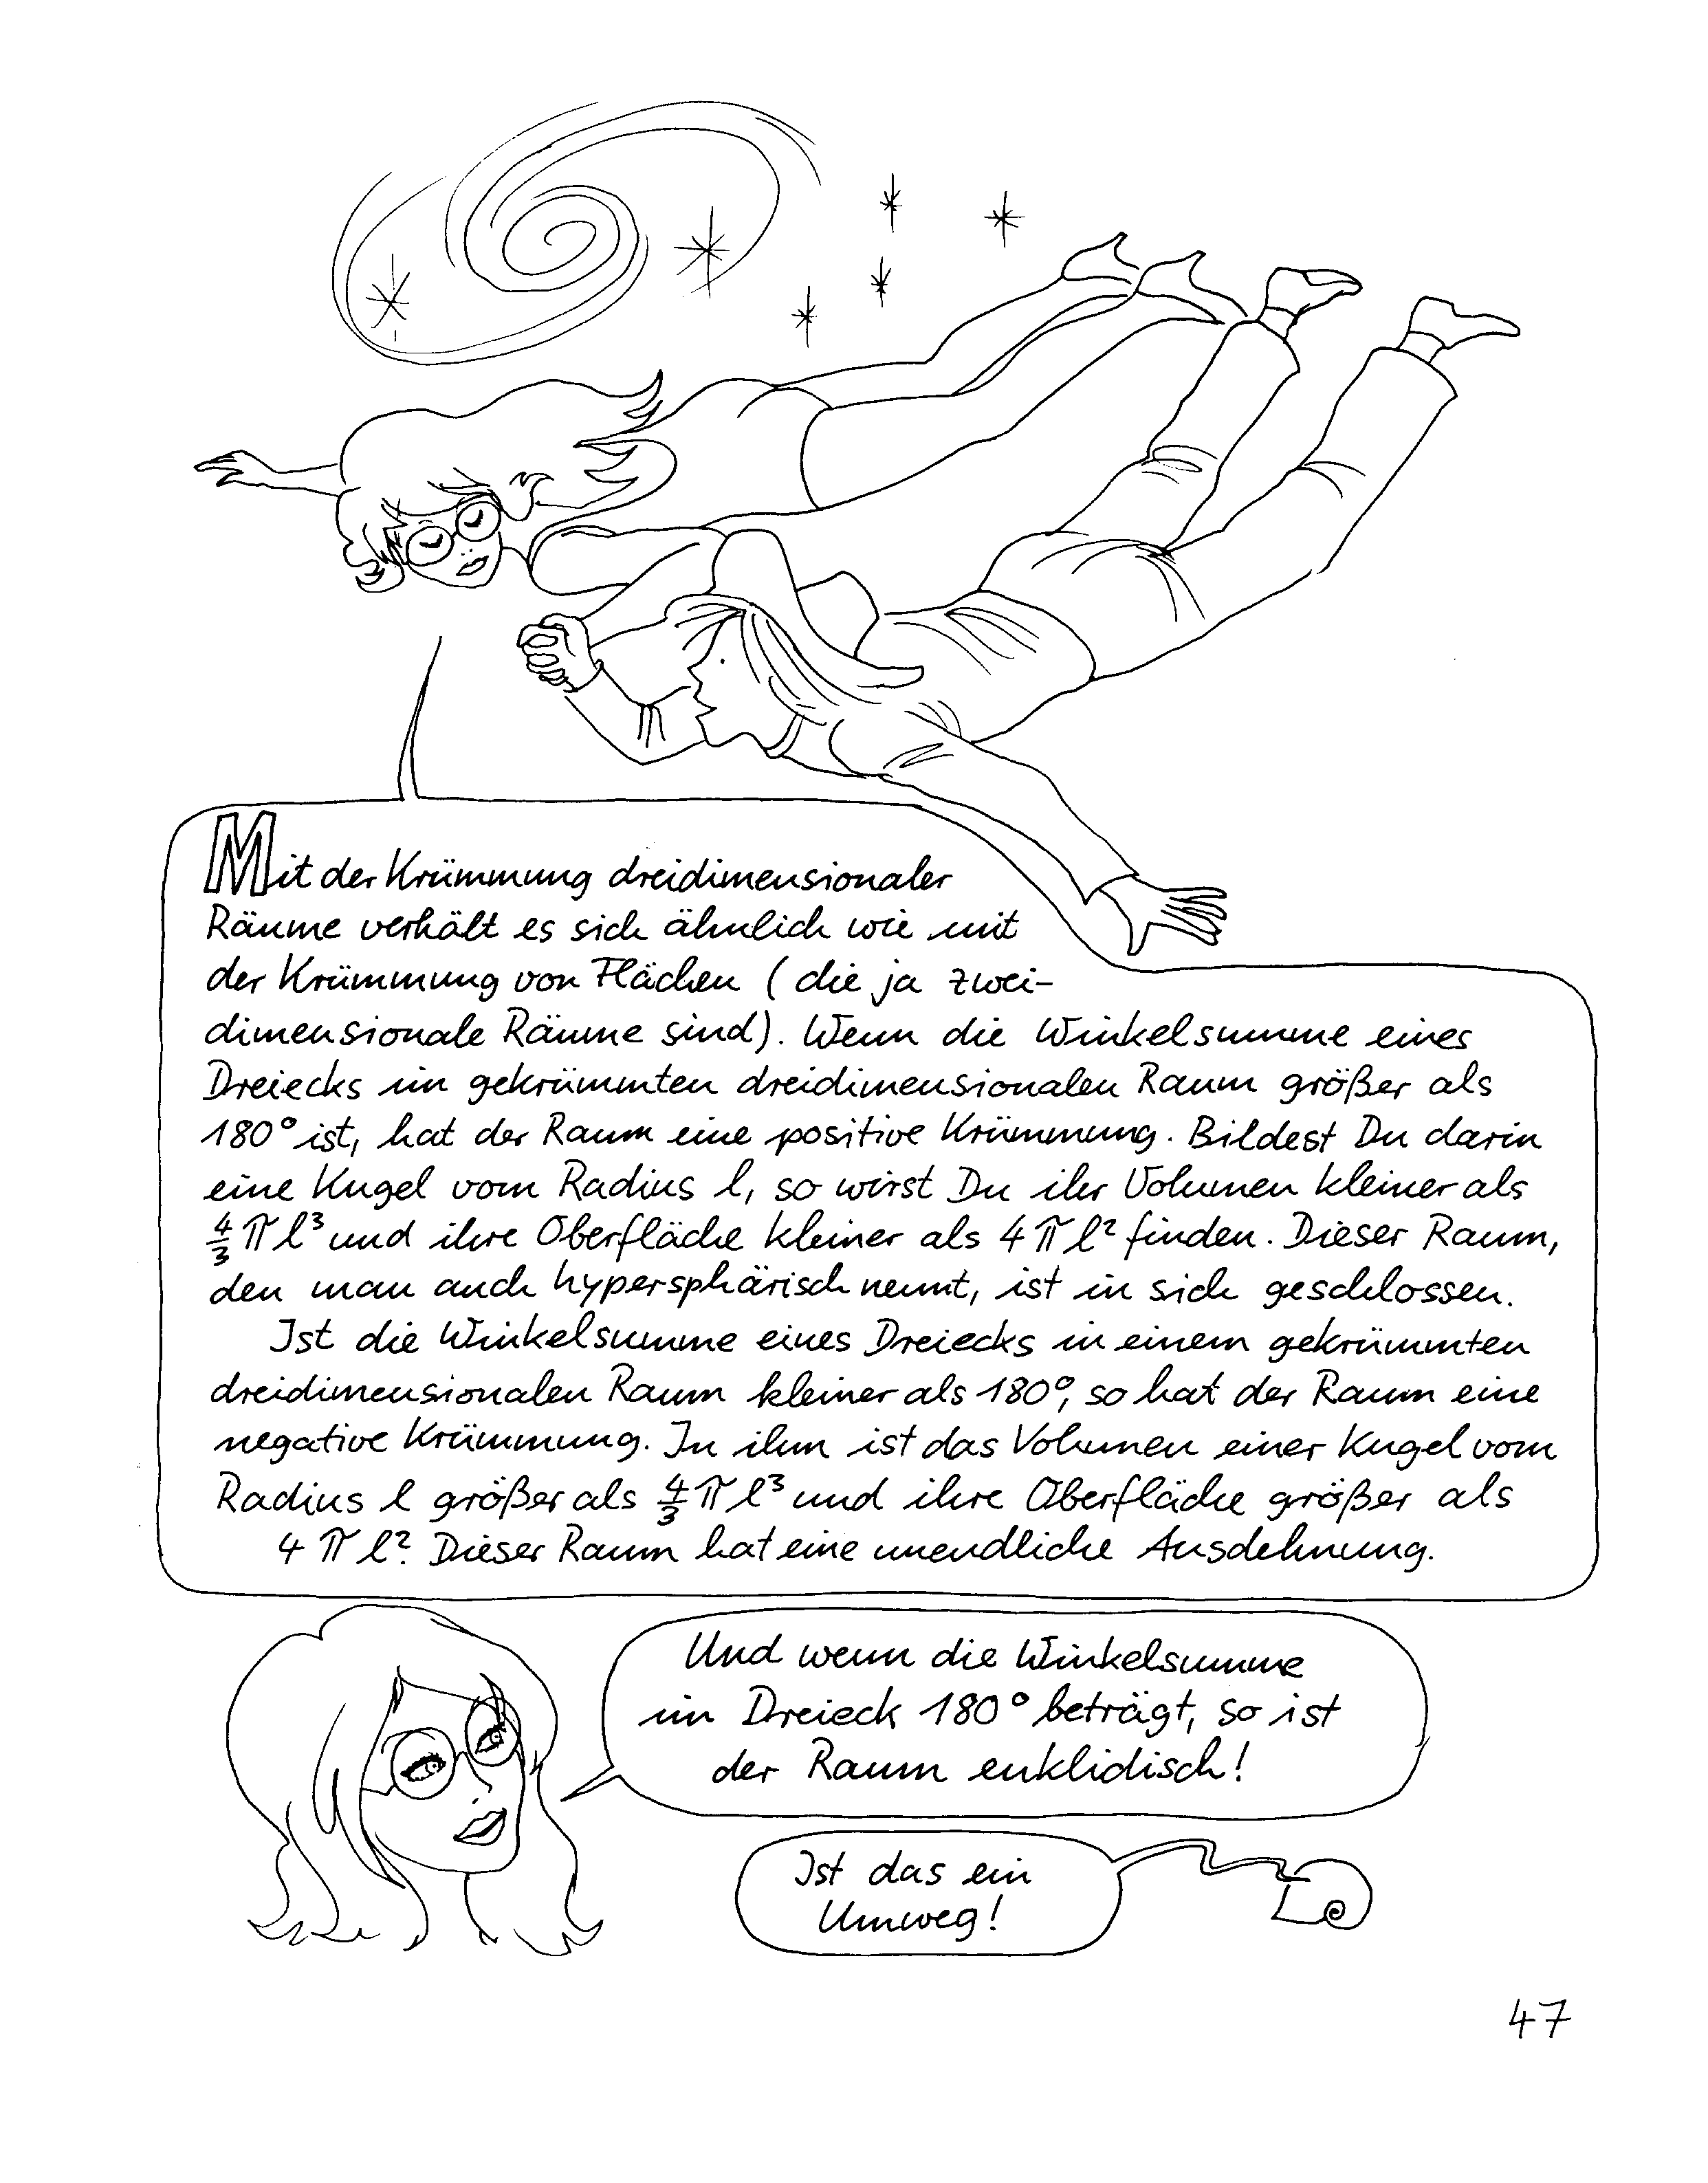 Mit der Krümmung dreidimensionaler
Räume verhält es sich ähnlich wie mit
der Krümmung von Flächen (die ja zwei-
dimensionale Räume sind). Wenn die Winkelsumme eines
Dreiecks im gekrümmten dreidimensionalen Raum größer als
180° ist, hat der Raum eine positive Krümmung. Bildest Du darin
eine Kugel vom Radius l, so wirst Du ihr Volumen kleiner als
4/3 π l³ und ihre Oberfläche kleiner als 4 π l² finden. Dieser Raum,
den man auch hypersphärisch nennt, ist in sich geschlossen.
Ist die Winkelsumme eines Dreiecks in einem gekrümmten
dreidimensionalen Raum kleiner als 180°, so hat der Raum eine
negative Krümmung. In ihm ist das Volumen einer Kugel vom
Radius l größer als 4/3 π l³ und ihre Oberfläche größer als
4 π l². Dieser Raum hat eine unendliche Ausdehnung.
Und wenn die Winkelsumme
im Dreieck 180° beträgt, so ist
der Raum euklidisch!
Ist das ein
Umweg!
47